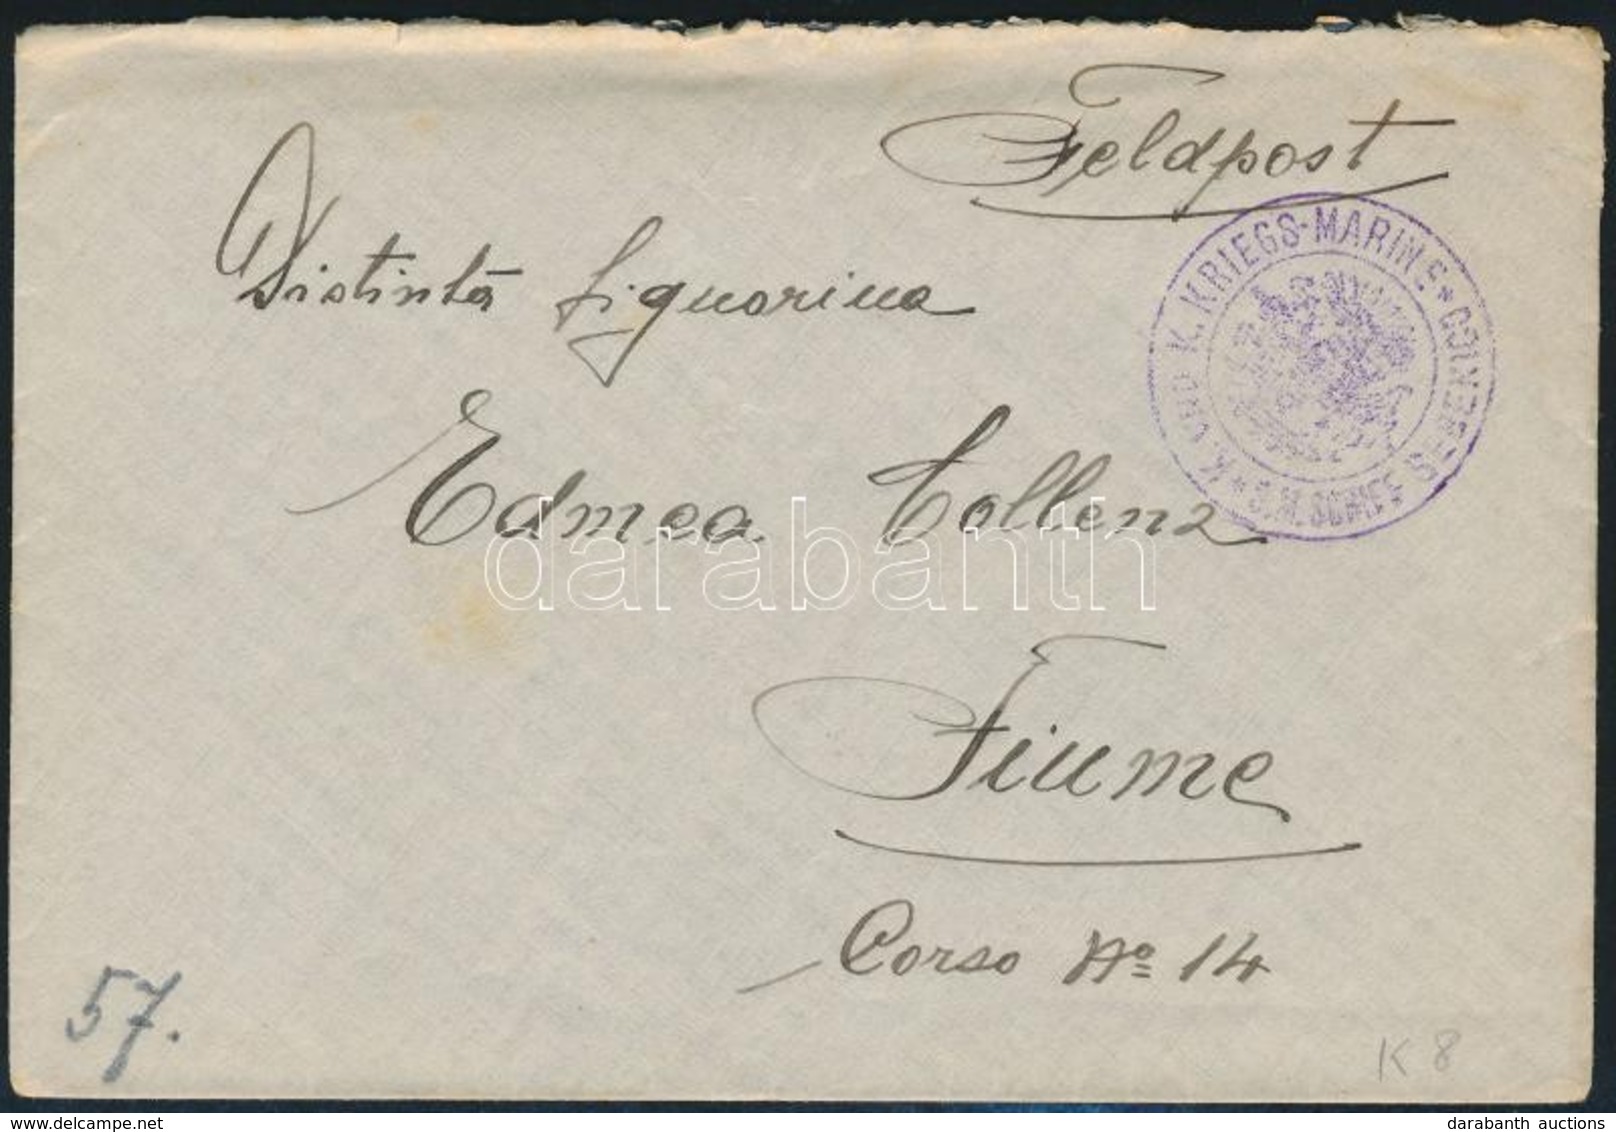 Feldpost
K. UND K. KRIEGS-MARINE * GÖTZ
* S.M. SCHIFF
Distinta Signorina
Edmea Collenz
darabanth
Fiume
Corso No 14
57.
K 8
delcampe.net
darabanth auctions